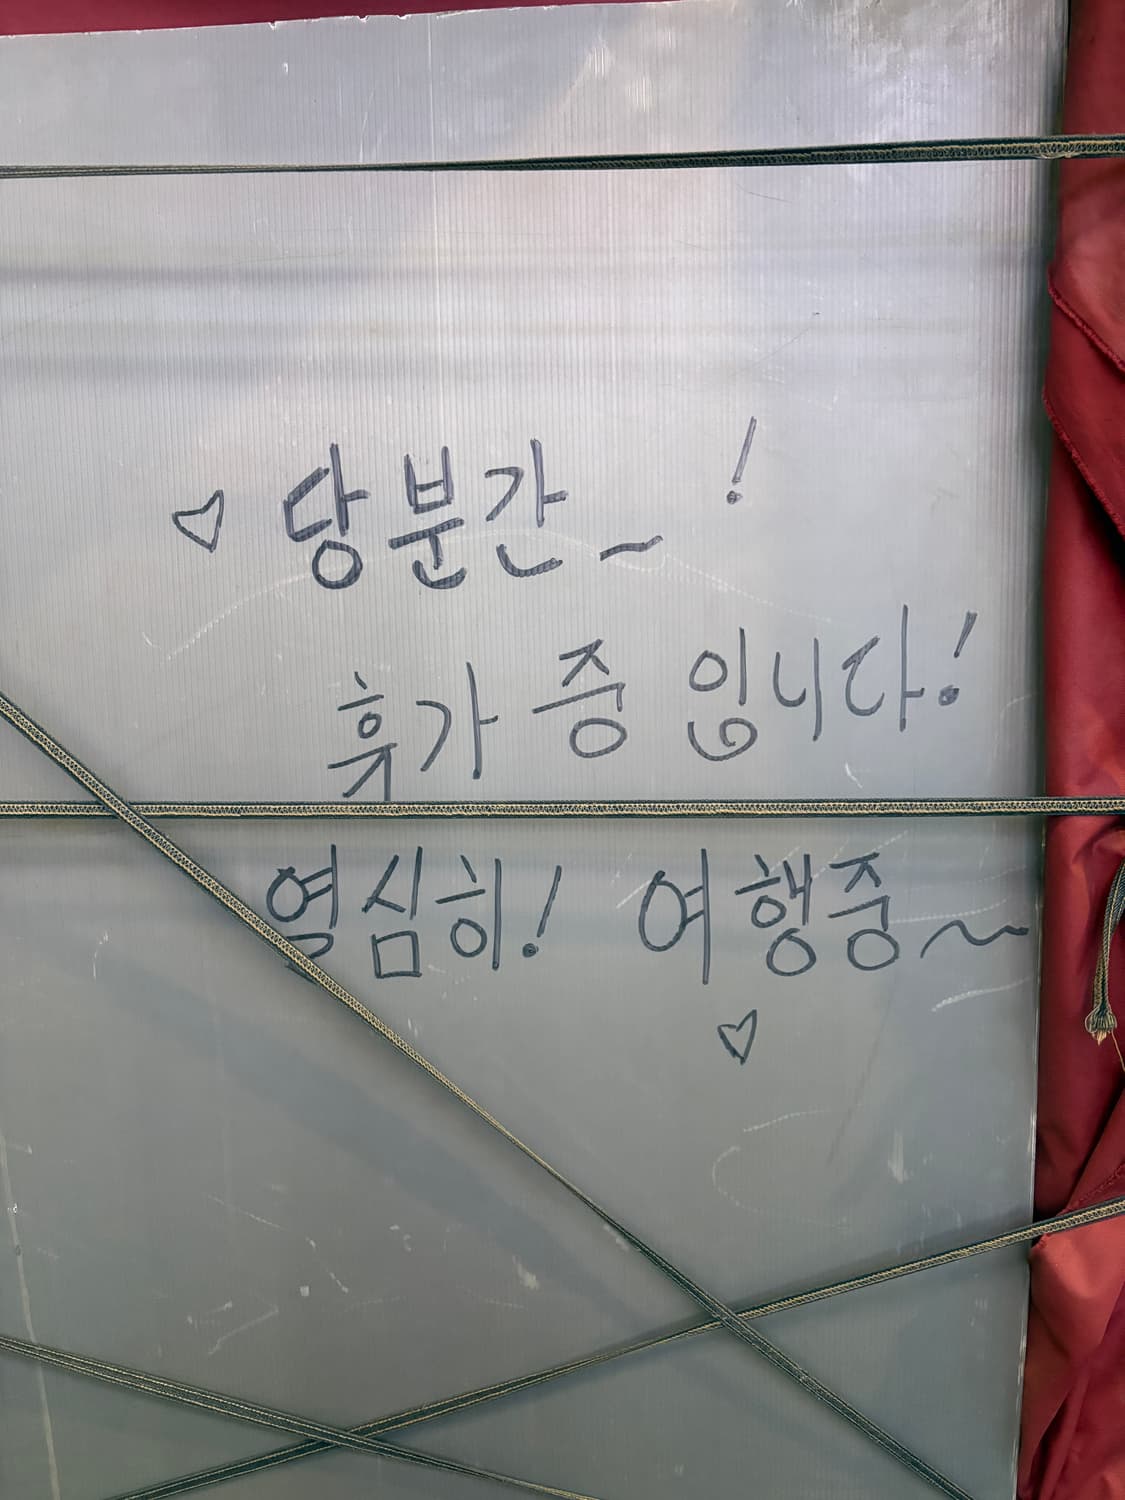 ♡ 당분간~!
휴가 중 입니다!
열심히! 여행중~
♡